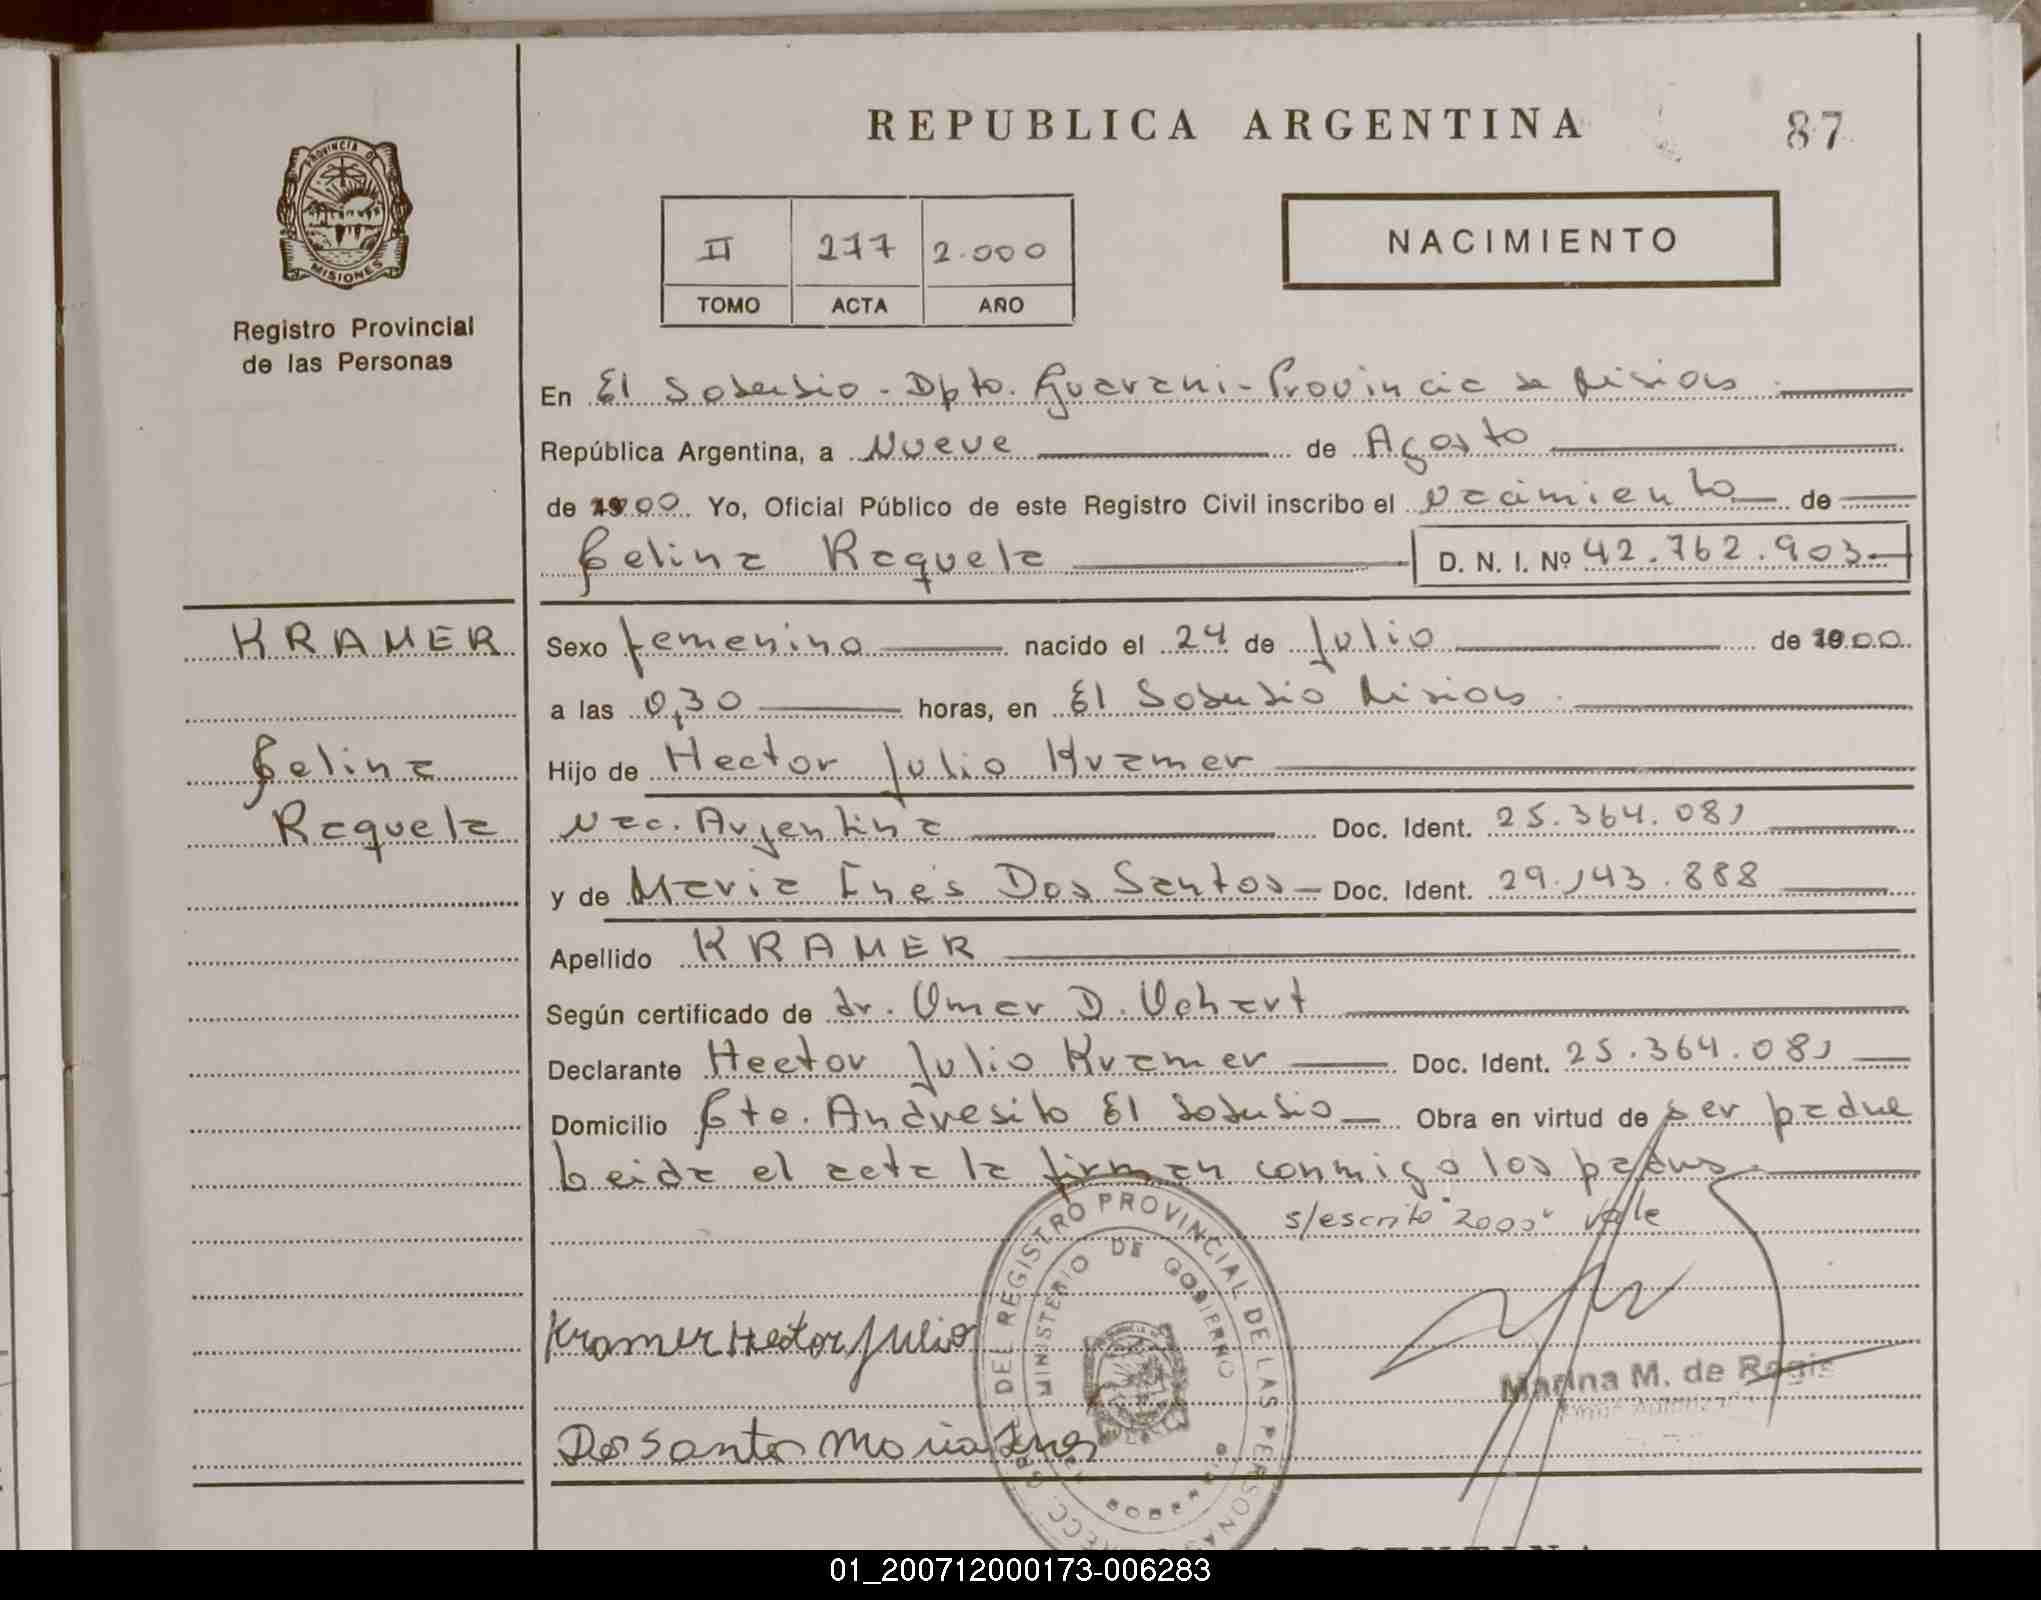 REPUBLICA ARGENTINA
87
PROVINCIA DE
MISIONES
Registro Provincial
de las Personas
II 277 2.000
TOMO ACTA AÑO
NACIMIENTO
En El Soberbio - Dpto. Guarani - Provincia de Misiones
República Argentina, a Nueve de Agosto
de 00 Yo, Oficial Público de este Registro Civil inscribo el nacimiento de
Celina Raquela D. N. I. Nº 42.762.903
KRAMER
Sexo femenino nacido el 24 de Julio de 00
a las 0,30 horas, en El Soberbio Misiones
Celina
Hijo de Hector Julio Kramer
Raquela
Nac. Argentina Doc. Ident. 25.364.081
y de Maria Inés Dos Santos Doc. Ident. 29.143.888
Apellido KRAMER
Según certificado de dr. Omar D.
Declarante Hector Julio Kramer Doc. Ident. 25.364.081
Domicilio Cte. Andresito El Soberbio Obra en virtud de ser padre
Leida el acta la firman conmigo los padres
s/escrito "2000" vale
DEL REGISTRO PROVINCIAL DE LAS PERSONAS
MINISTERIO DE GOBIERNO
Kramer Hector Julio
Marina M. de Regis
Dos Santos Maria Ines
01_200712000173-006283